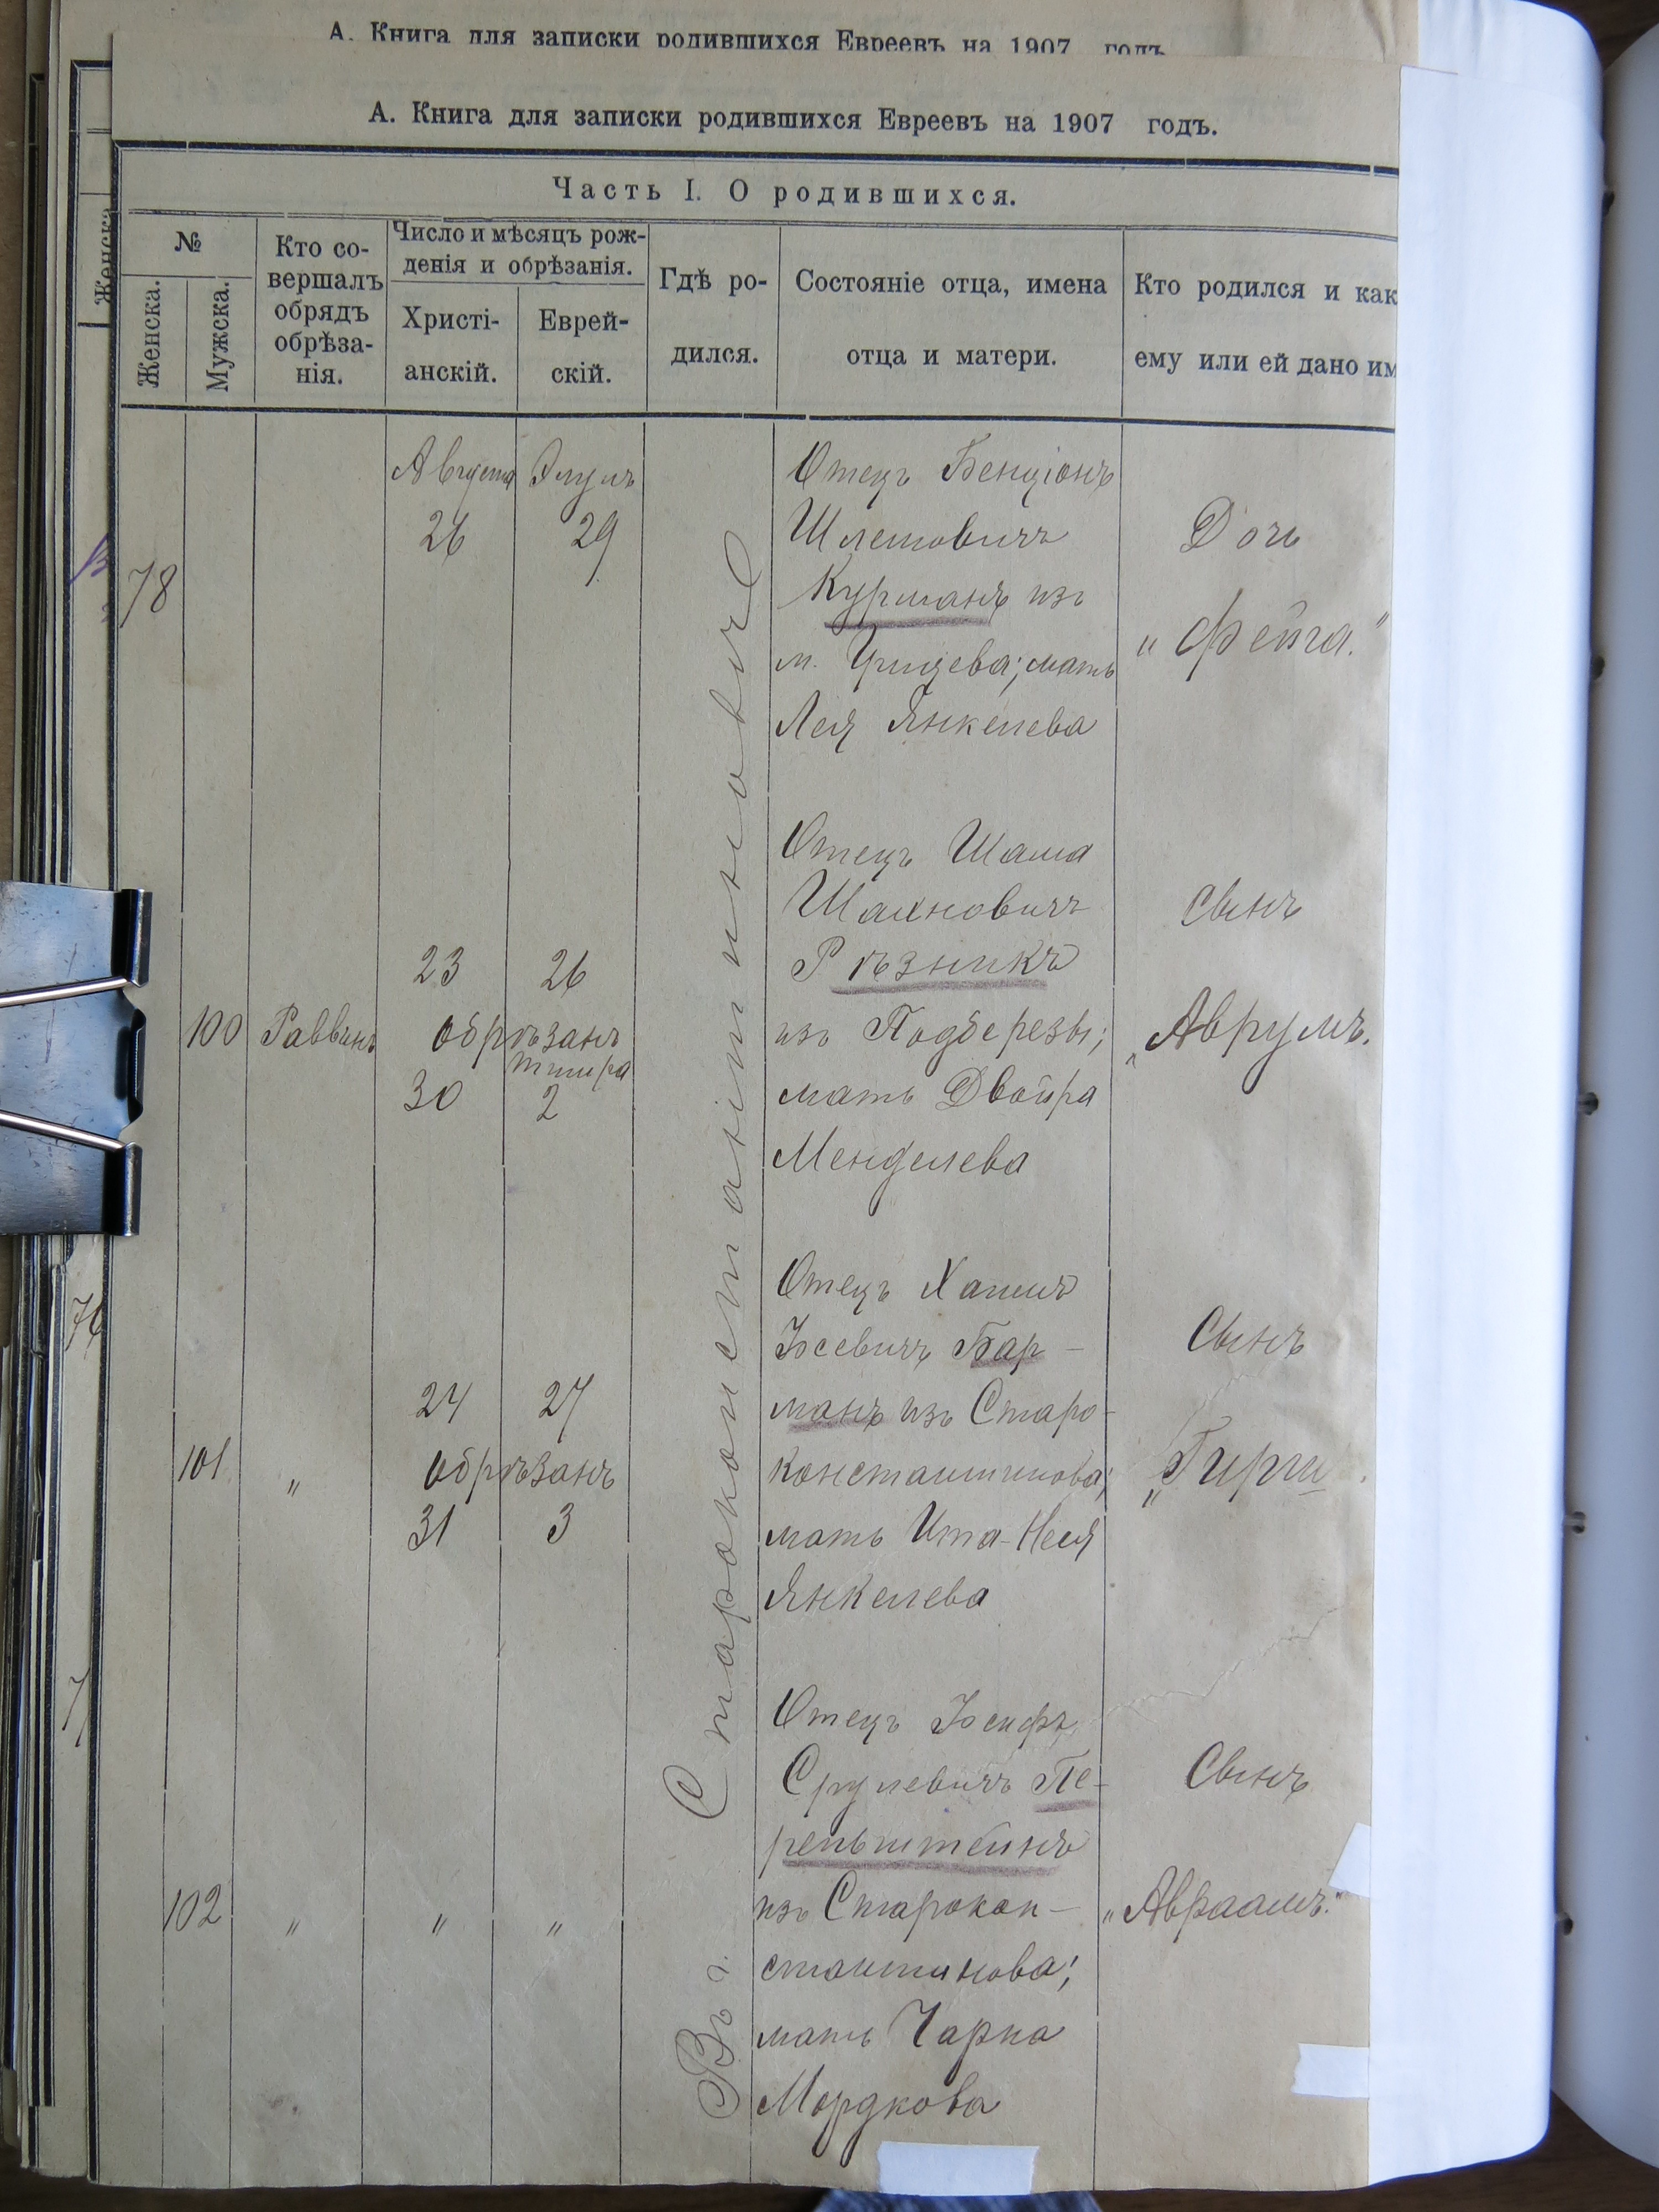 А. Книга для записки родившихся Евреевъ на 1907 годъ.
А. Книга для записки родившихся Евреевъ на 1907 годъ.
Часть I. О родившихся.
№
Женска.
Мужска.
Кто со-
вершалъ
обрядъ
обрѣза-
нія.
Число и мѣсяцъ рож-
денія и обрѣзанія.
Христі-
анскій.
Еврей-
скій.
Гдѣ ро-
дился.
Состояніе отца, имена
отца и матери.
Кто родился и как
ему или ей дано им
Женска
Въ г. Староконстантиновѣ
78
Августа Элулъ
26 29
Отецъ Бенціонъ
Шлемовичъ
Курманъ изъ
м. Грицева; мать
Лея Янкелева
Дочь
„Фейга."
100 Раввинъ
23 26
обрѣзанъ
тишра
30 2
Отецъ Шама
Шахновичъ
Рѣзникъ
изъ Подберезы;
мать Двойра
Менделева
Сынъ
„Аврумъ.
101 „
24 27
обрѣзанъ
31 3
Отецъ Хаимъ
Іосевичъ Бар-
манъ изъ Старо-
константинова;
мать Ита-Неся
Янкелева
Сынъ
„Гирш.
102 „ „ „
Отецъ Іосифъ
Срулевичъ Пе-
рельштейнъ
изъ Старокон-
стантинова;
мать Чарна
Мордкова
Сынъ
„Авраамъ."
76
7